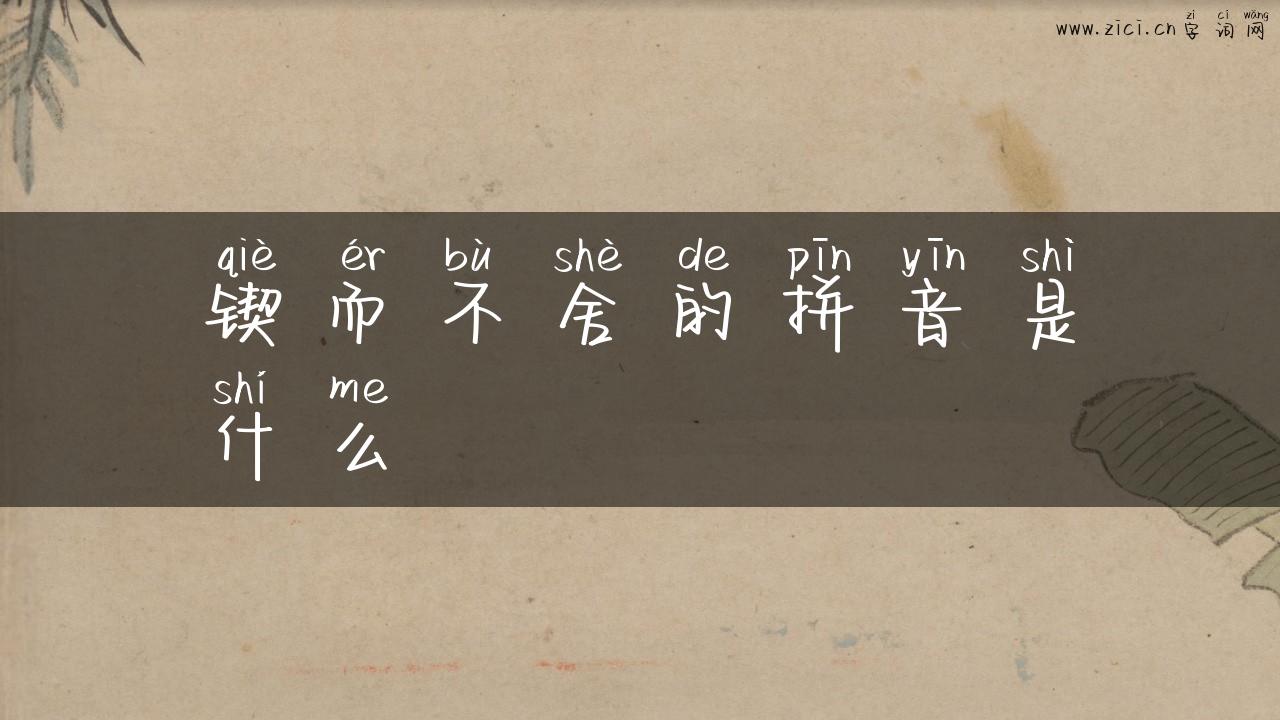 zì cí wǎng
www.zici.cn 字 词 网
qiè ér bù shè de pīn yīn shì
锲 而 不 舍 的 拼 音 是
shí me
什 么